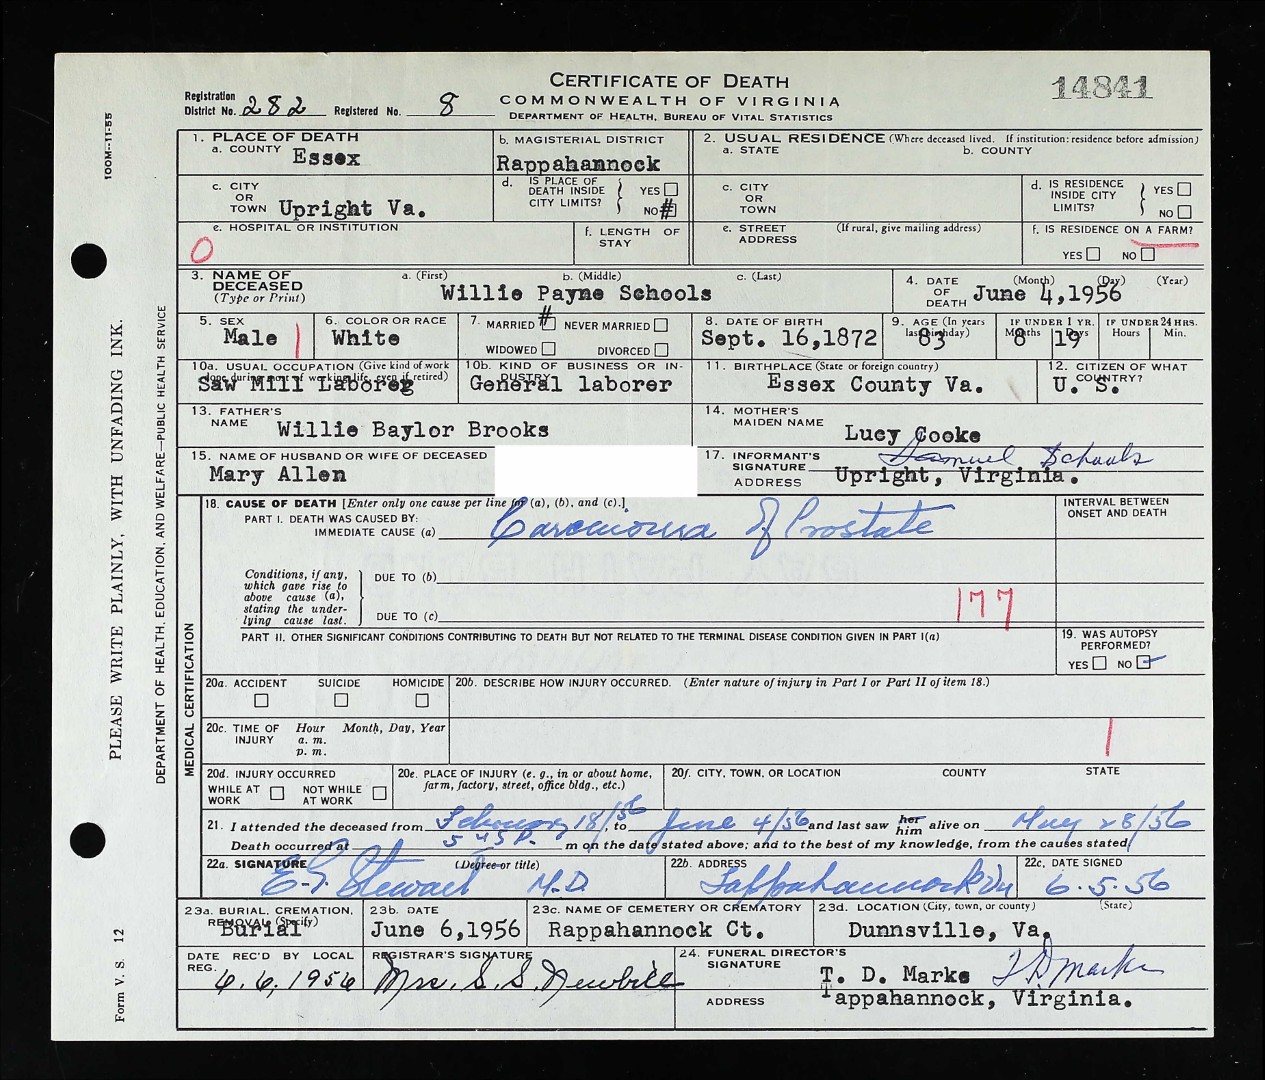 CERTIFICATE OF DEATH
COMMONWEALTH OF VIRGINIA
DEPARTMENT OF HEALTH, BUREAU OF VITAL STATISTICS
14841
Registration District No. 282 Registered No. 8
100M--11-55
PLEASE WRITE PLAINLY, WITH UNFADING INK.
DEPARTMENT OF HEALTH, EDUCATION, AND WELFARE—PUBLIC HEALTH SERVICE
Form V. S. 12
1. PLACE OF DEATH
a. COUNTY Essex
b. MAGISTERIAL DISTRICT
Rappahannock
2. USUAL RESIDENCE (Where deceased lived. If institution: residence before admission)
a. STATE b. COUNTY
c. CITY OR TOWN Upright Va.
d. IS PLACE OF DEATH INSIDE CITY LIMITS? YES NO #
c. CITY OR TOWN
d. IS RESIDENCE INSIDE CITY LIMITS? YES NO
e. HOSPITAL OR INSTITUTION
0
f. LENGTH OF STAY
e. STREET ADDRESS (If rural, give mailing address)
f. IS RESIDENCE ON A FARM?
YES NO
3. NAME OF DECEASED (Type or Print)
a. (First) b. (Middle) c. (Last)
Willie Payne Schools
4. DATE OF DEATH (Month) (Day) (Year)
June 4,1956
5. SEX
Male
6. COLOR OR RACE
White
7. MARRIED # NEVER MARRIED
WIDOWED DIVORCED
8. DATE OF BIRTH
Sept. 16,1872
9. AGE (In years last birthday)
83
IF UNDER 1 YR.
Months Days
8 19
IF UNDER 24 HRS.
Hours Min.
10a. USUAL OCCUPATION (Give kind of work done during most of working life, even if retired)
Saw Mill Laborer
10b. KIND OF BUSINESS OR INDUSTRY
General laborer
11. BIRTHPLACE (State or foreign country)
Essex County Va.
12. CITIZEN OF WHAT COUNTRY?
U. S.
13. FATHER'S NAME
Willie Baylor Brooks
14. MOTHER'S MAIDEN NAME
Lucy Cooke
15. NAME OF HUSBAND OR WIFE OF DECEASED
Mary Allen
17. INFORMANT'S SIGNATURE Samuel Schools
ADDRESS Upright, Virginia.
MEDICAL CERTIFICATION
18. CAUSE OF DEATH [Enter only one cause per line for (a), (b), and (c).]
INTERVAL BETWEEN ONSET AND DEATH
PART I. DEATH WAS CAUSED BY:
IMMEDIATE CAUSE (a) Carcinoma of Prostate
Conditions, if any, which gave rise to above cause (a), stating the underlying cause last.
DUE TO (b)
DUE TO (c)
177
PART II. OTHER SIGNIFICANT CONDITIONS CONTRIBUTING TO DEATH BUT NOT RELATED TO THE TERMINAL DISEASE CONDITION GIVEN IN PART I(a)
19. WAS AUTOPSY PERFORMED?
YES NO
20a. ACCIDENT SUICIDE HOMICIDE
20b. DESCRIBE HOW INJURY OCCURRED. (Enter nature of injury in Part I or Part II of item 18.)
20c. TIME OF INJURY Hour Month, Day, Year
a. m.
p. m.
20d. INJURY OCCURRED
WHILE AT WORK NOT WHILE AT WORK
20e. PLACE OF INJURY (e. g., in or about home, farm, factory, street, office bldg., etc.)
20f. CITY, TOWN, OR LOCATION COUNTY STATE
21. I attended the deceased from February 18/56, to June 4/56 and last saw her him alive on May 28/56
Death occurred at 5 45 P. m on the date stated above; and to the best of my knowledge, from the causes stated
22a. SIGNATURE (Degree or title)
E. Stewart M.D.
22b. ADDRESS
Tappahannock Va
22c. DATE SIGNED
6.5.56
23a. BURIAL, CREMATION, REMOVAL (Specify)
Burial
23b. DATE
June 6,1956
23c. NAME OF CEMETERY OR CREMATORY
Rappahannock Ct.
23d. LOCATION (City, town, or county) (State)
Dunnsville, Va.
DATE REC'D BY LOCAL REG.
6.6,1956
REGISTRAR'S SIGNATURE
Mrs. S. S. Newbill
24. FUNERAL DIRECTOR'S SIGNATURE
T. D. Marks T D Marks
ADDRESS Tappahannock, Virginia.